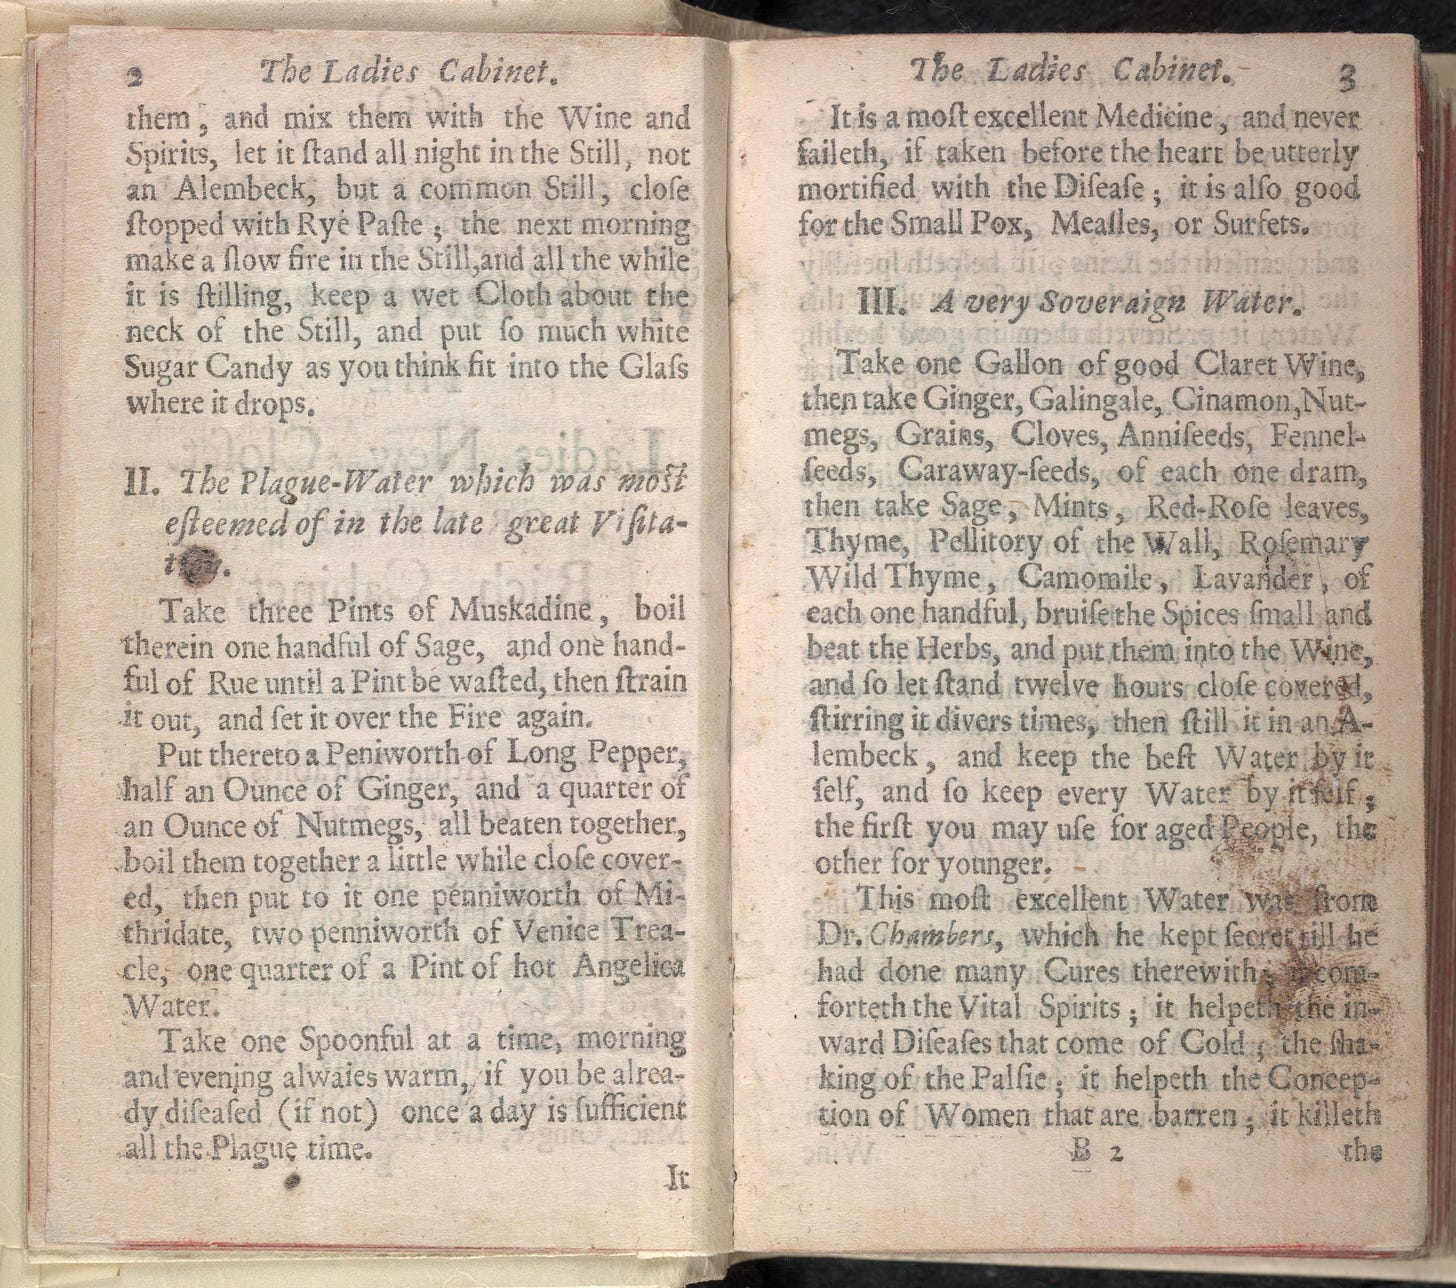 2 The Ladies Cabinet.
them, and mix them with the Wine and
Spirits, let it ſtand all night in the Still, not
an Alembeck, but a common Still, cloſe
ſtopped with Rye Paſte; the next morning
make a ſlow fire in the Still,and all the while
it is ſtilling, keep a wet Cloth about the
neck of the Still, and put ſo much white
Sugar Candy as you think fit into the Glaſs
where it drops.
II. The Plague-Water which was moſt
eſteemed of in the late great Viſita-
Take three Pints of Muskadine, boil
therein one handful of Sage, and one hand-
ful of Rue until a Pint be waſted, then ſtrain
it out, and ſet it over the Fire again.
Put thereto a Peniworth of Long Pepper,
half an Ounce of Ginger, and a quarter of
an Ounce of Nutmegs, all beaten together,
boil them together a little while cloſe cover-
ed, then put to it one penniworth of Mi-
thridate, two penniworth of Venice Trea-
cle, one quarter of a Pint of hot Angelica
Water.
Take one Spoonful at a time, morning
and evening alwaies warm, if you be alrea-
dy diſeaſed (if not) once a day is ſufficient
all the Plague time.
It
The Ladies Cabinet. 3
It is a moſt excellent Medicine, and never
faileth, if taken before the heart be utterly
mortified with the Diſeaſe; it is alſo good
for the Small Pox, Meaſles, or Surfets.
III. A very Soveraign Water.
Take one Gallon of good Claret Wine,
then take Ginger, Galingale, Cinamon,Nut-
megs, Grains, Cloves, Anniſeeds, Fennel-
ſeeds, Caraway-ſeeds, of each one dram,
then take Sage, Mints, Red-Roſe leaves,
Thyme, Pellitory of the Wall, Roſemary
Wild Thyme, Camomile, Lavander, of
each one handful, bruiſe the Spices ſmall and
beat the Herbs, and put them into the Wine,
and ſo let ſtand twelve hours cloſe covered,
ſtirring it divers times, then ſtill it in an A-
lembeck, and keep the beſt Water by it
ſelf, and ſo keep every Water by it ſelf;
the firſt you may uſe for aged People, the
other for younger.
This moſt excellent Water was from
Dr. Chambers, which he kept ſecret till he
had done many Cures therewith; it com-
forteth the Vital Spirits; it helpeth the in-
ward Diſeaſes that come of Cold; the ſha-
king of the Palſie; it helpeth the Concep-
tion of Women that are barren; it killeth
B 2 the